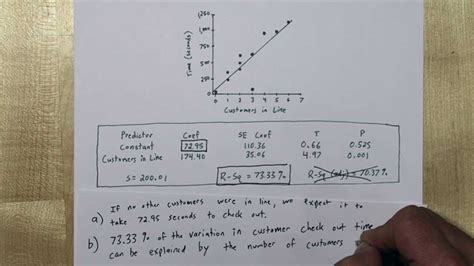 Time (seconds)
1,250
1,000
750
500
250
0
0 1 2 3 4 5 6 7
Customers in Line
Predictor Coef SE Coef T P
Constant 72.95 110.36 0.66 0.525
Customers in Line 174.40 35.06 4.97 0.001
S = 200.01 R-Sq = 73.33% R-Sq (adj) = 70.37%
a) If no other customers were in line, we expect it to
take 72.95 seconds to check out.
b) 73.33 % of the variation in customer check out time
can be explained by the number of customers